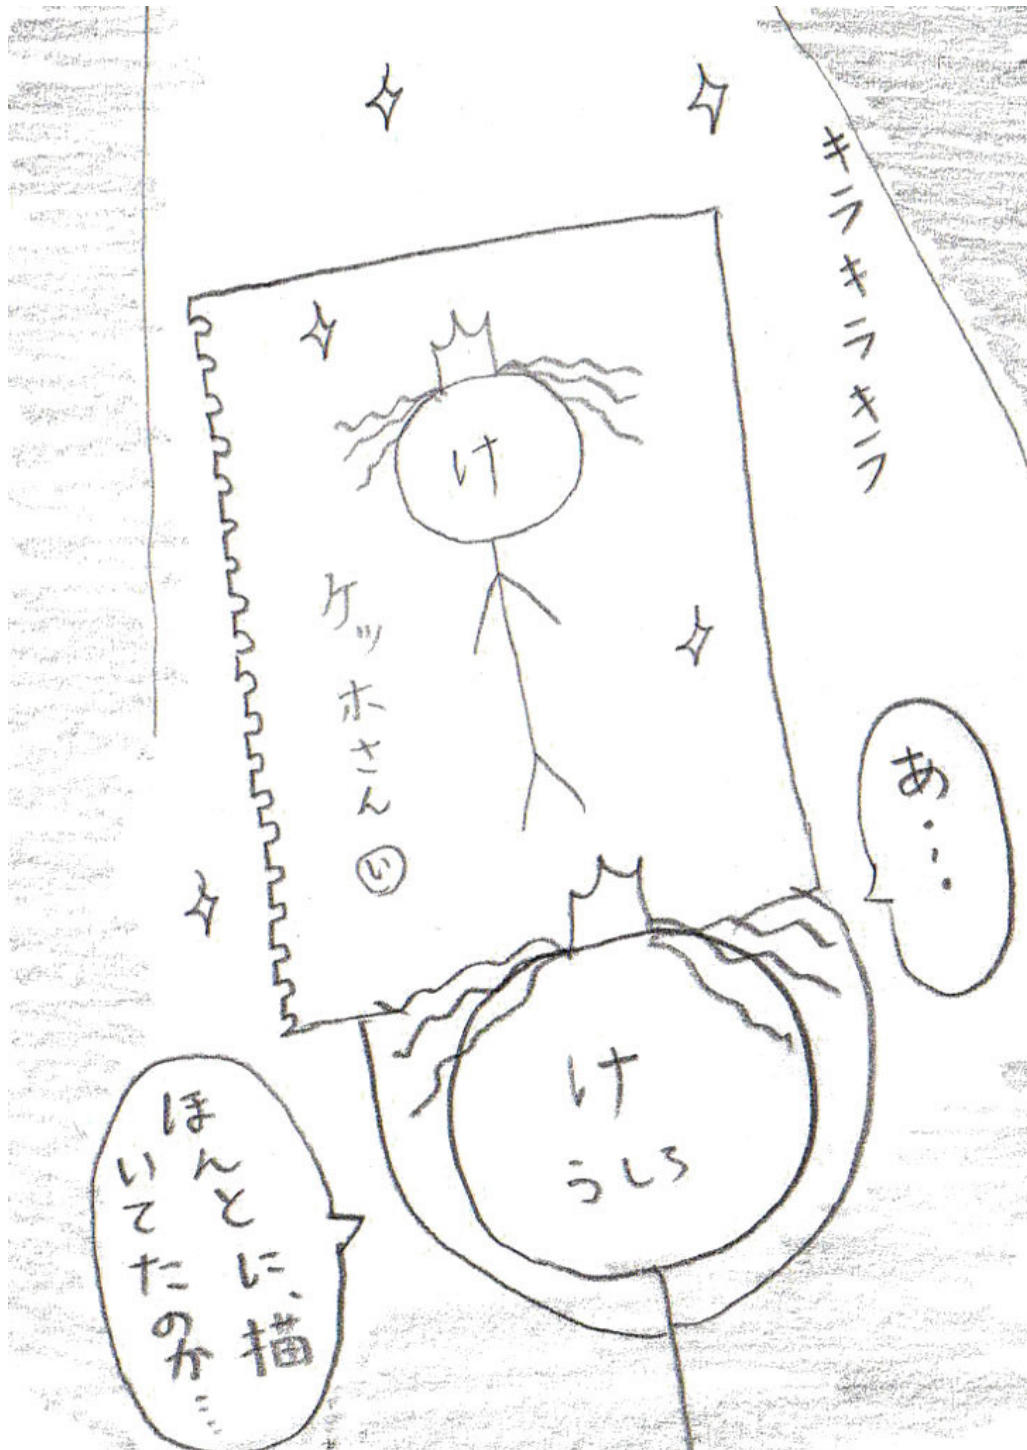 キラキラキラ
け
ケッホさん
い
あ・・・
け
うしろ
ほんとに、描
いてたのか…